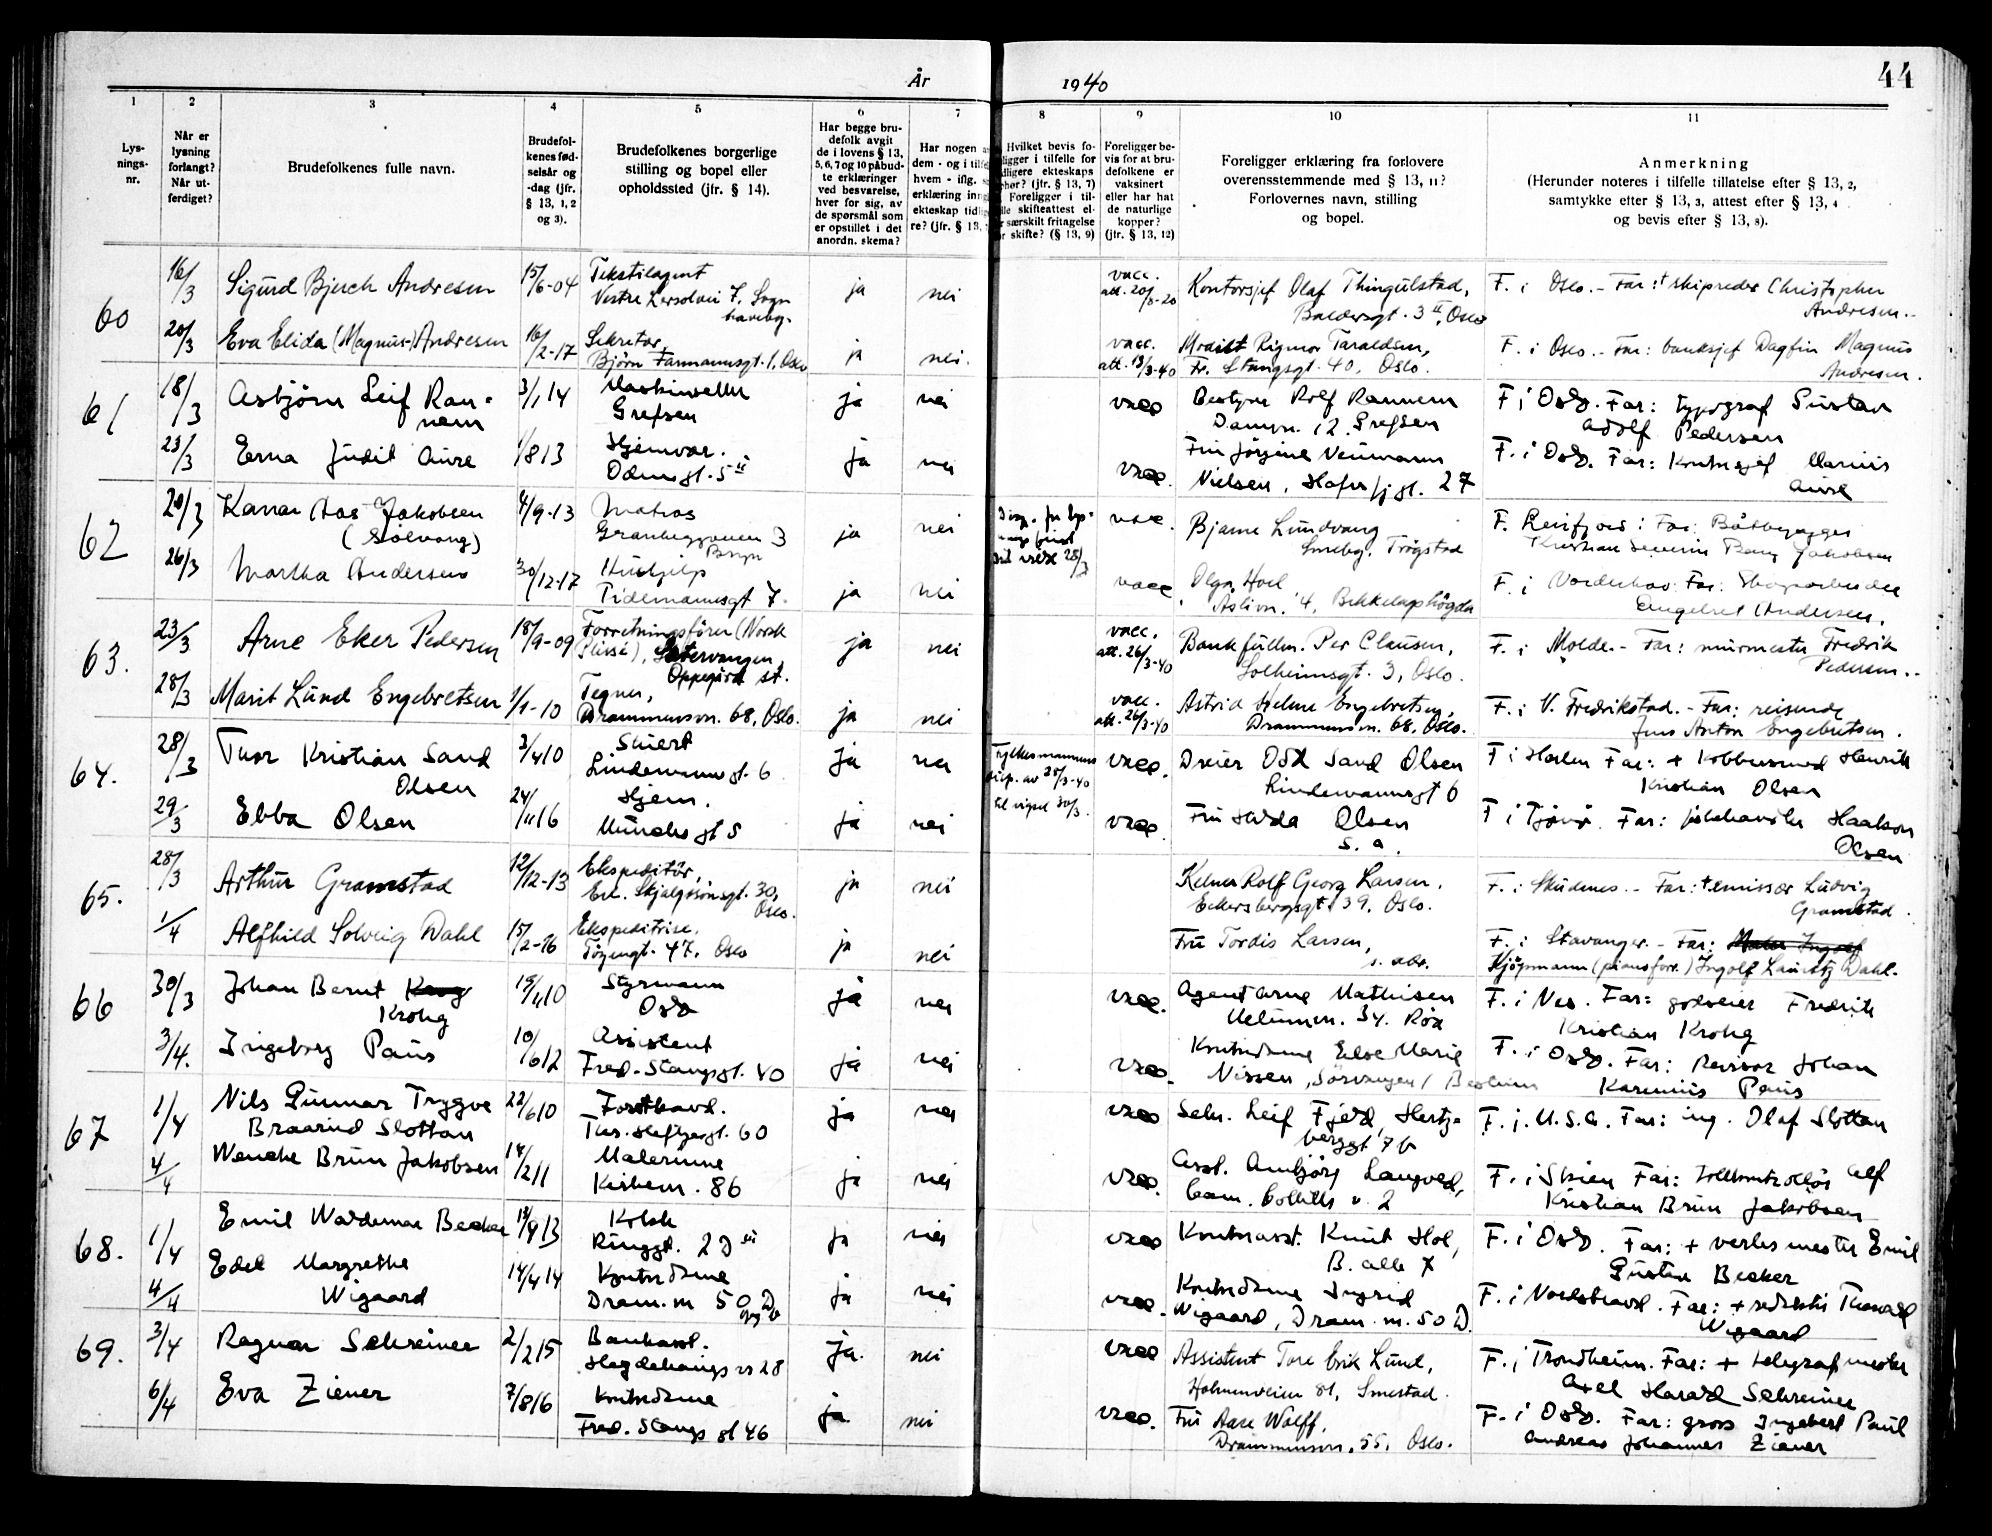 År 1940
44
1
2
3
4
5
6
7
8
9
10
11
Lys-
nings-
nr.
Når er
lysning
forlangt?
Når ut-
ferdiget?
Brudefolkenes fulle navn.
Brudefol-
kenes fød-
selsår og
-dag (jfr.
§ 13, 1, 2
og 3).
Brudefolkenes borgerlige
stilling og bopel eller
opholdssted (jfr. § 14).
Har begge bru-
defolk avgit
de i lovens § 13,
5, 6, 7 og 10 påbud-
te erklæringer
ved besvarelse,
hver for sig, av
de spørsmål som
er opstillet i det
anordn. skema?
Har nogen
dem - og i
hvem - iflg.
erklæring
ekteskap
re? (jfr. § 13,
Hvilket bevis fo-
ligger i tilfelle for
dligere ekteskaps
(jfr. § 13, 7)
Foreligger i til-
skifteattest el-
særskilt fritagelse
skifte? (§ 13, 9)
Foreligger be-
vis for at bru-
defolkene er
vaksinert
eller har hat
de naturlige
kopper?
(jfr. § 13, 12)
Foreligger erklæring fra forlovere
overensstemmende med § 13, 11?
Forlovernes navn, stilling
og bopel.
Anmerkning
(Herunder noteres i tilfelle tillatelse efter § 13, 2,
samtykke efter § 13, 3, attest efter § 13, 4
og bevis efter § 13, 8).
60
16/3 Sigurd Bjerch Andresen 15/6-04 Tekstilagent
Vestre 7, Sogn
haveby.
ja nei vacc.
att. 20/8-20 Kontorsjef Olaf Thingulstad,
Baldersgt. 3 II, Oslo
F. i Oslo. - Far: † skipsreder Christopher
Andresen.
20/3 Eva Elida (Magnus-) Andresen 16/2-17 Sekretær,
Bjørn Farmannsgt. 1, Oslo
ja nei. vacc.
att. 13/3-40 Rigmor Taraldsen,
Fr. Stangsgt. 40, Oslo.
F. i Oslo. - Far: banksjef Dagfin Magnus
Andresen.
61
18/3 Asbjörn Leif Ran-
nem 3/1 14
Grefsen
ja nei vacc Bestyrer Rolf Rannem
Damvn. 12 Grefsen
F i Oslo. Far: typograf Gustav
Adolf Pedersen
23/3 Erna Judit Aure 1/8 13 Hjemvær.
Odinsgt. 5 II
ja nei vacc. Fru Jörgine Neumann
Nielsen, 27
F. i Oslo. Far: Kontorsjef Marius
Aure
62
20/3 Aas Jakobsen
(Sølvang) 4/9-13 Matros
3
Bryn
ja nei
28/3
vacc. Bjarne Lundvang
Trögstad
F. Far: Båtbygger
Kristian Severin Jakobsen
26/3 Martha Andersen 30/12-17 Hushjelp
Tidemannsgt 7.
ja nei vacc. Olga Hoel
Åslivn. 4, Bekkelagshøgda
F. i Far: Skogsarbeider
Engebret Andersen.
63.
23/3 Arne Eker Pedersen 18/9-09 Forretningsfører (Norsk
Plissé), Sætervangen,
Oppegård st.
ja nei vacc.
att. 26/3-40 Bankfullm. Per Clausen,
Solheimsgt. 3, Oslo.
F. i Molde. - Far: murmester Fredrik
Pedersen.
28/3 Marit Lund Engebretsen 1/1-10 Tegner,
Drammensvn. 68, Oslo.
ja nei vacc.
att. 26/3-40 Astrid Helene Engebretsen,
Drammensvn. 68, Oslo.
F. i V. Fredrikstad. - Far: reisende
Jens Anton Engebretsen.
64.
28/3 Thor Kristian Sand
Olsen 3/4 10
Lindemannsgt. 6
ja nei Fylkesmannens
disp. av 28/3-40
til vigsel 30/3.
vacc. Dreier Odd Sand Olsen
Lindemannsgt 6
F i Halden Far: + Kobbersmed Henrik
Kristian Olsen
29/3 Ebba Olsen 24/11 16 Hjem.
Munchs gt 5
ja nei vacc. Fru Hilda Olsen
s. a.
F i Tjöme. Far: Haakon
Olsen
65.
28/3 Arthur Gramstad 12/12-13 Ekspeditör,
Erl. Skjalgssønsgt. 30,
Oslo.
ja nei Kelner Rolf Georg Larsen,
Eckersbergsgt. 39, Oslo.
F. i Skudenes. - Far: † emissær Ludvig
Gramstad.
1/4 Alfhild Solveig Dahl 15/2-16 Ekspeditrise,
Töyengt. 47, Oslo
ja nei Fru Tordis Larsen,
s. adr.
F. i Stavanger. - Far: Maler Ingolf
Kjöpmann (pianoforr.) Ingolf Lauritz Dahl.
66
30/3 Johan Bernt Krog
Krohg 15/4 10 Styrmann
Oslo
ja nei vacc. Agent Arne Mathisen
34. Röa
F. i Nes. Far: godseier Fredrik
Kristian Krohg
3/4. Ingeborg Paus 10/6 12 Assistent
Fred. Stangsgt. 40
ja nei vacc. Kontordame Else Marie
Nissen, Sörvangen, Bestum
F. i Oslo. Far: Revisor Johan
Karenius Paus
67
1/4 Nils Gunnar Trygve
Braarud Slottan 22/6 10 Forstkand.
Ths. Heftyesgt. 60
ja nei vacc Sekr. Leif Fjeld, Hertz-
berggt 7 b
F. i. U.S.A. Far: ing. Olaf Slottan
4/4 Wenche Brun Jakobsen 14/2 11 Malerinne
Kirkevn. 86
ja nei vacc. Asst. Ambjörg Langved,
Cam. Colletts v. 2
F. i Skien Far: Tollkontrollör Alf
Kristian Brun Jakobsen
68.
1/4 Emil Waldemar Becker 13/9 13
Ringgt. 2 D III
ja nei vacc Kontorasst. Knut Hol,
B. alle 7
F. i Oslo. Far: + verksmester Emil
Gustav Becker
4/4 Edel Margrethe
Wigaard 14/4 14 Kontordame
Dram. vn 50 D
ja nei vacc. Kontordame Ingrid
Wigaard, Dram. vn. 50 D.
F. i Nordstrand. Far: + redaktör Thorvald
Wigaard
69.
3/4 Ragnar Schreiner 2/2 15 Bankasst.
Hegdehaugsvn 28
ja. nei vacc Assistent Tore Erik Lund,
Holmenveien 81, Smestad.
F. i Trondheim. Far: + telegrafmester
Axel Harald Schreiner
6/4 Eva Ziener 7/8 16 Kontordame
Fred. Stangs gt 46
ja nei vacc. Fru Aase Wolff,
Drammensvn. 55, Oslo.
F. i Oslo. Far: gross Ingebert Paul
Andreas Johannes Ziener